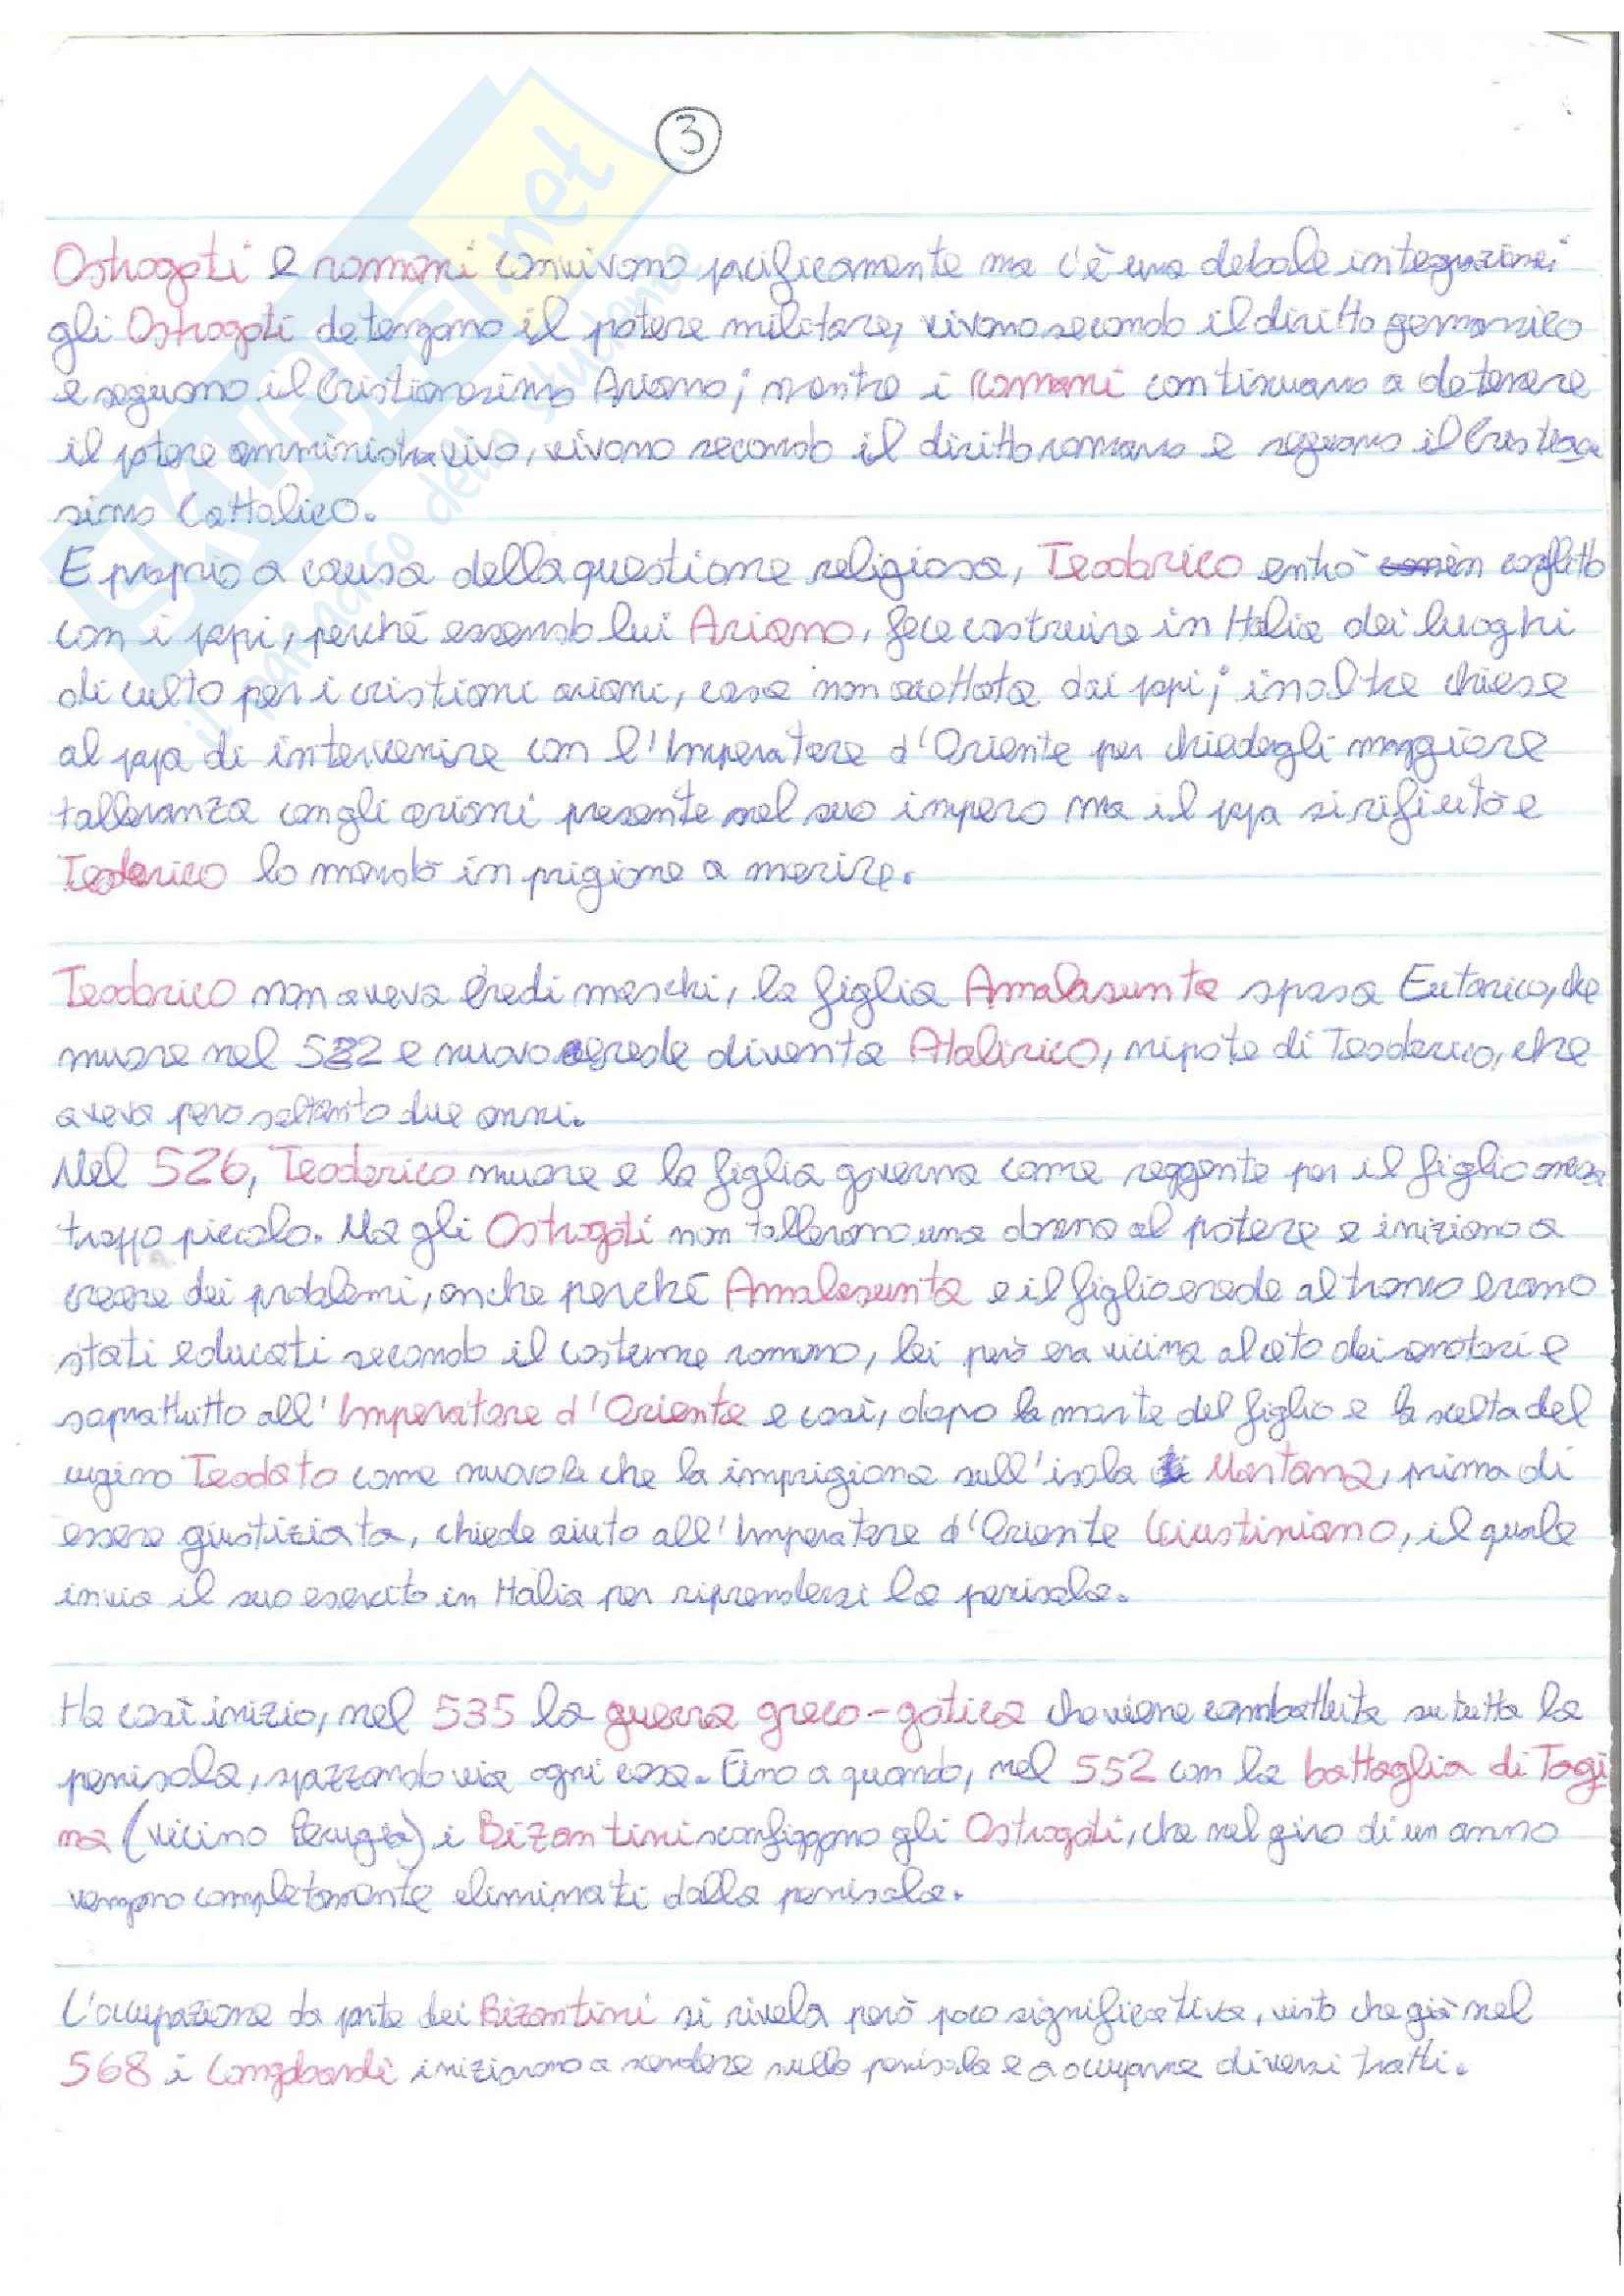 3
Ostrogoti e romani convivono pacificamente ma c'è una debole integrazione:
gli Ostrogoti detengono il potere militare, vivono secondo il diritto germanico
e seguono il Cristianesimo Ariano; mentre i romani continuano a detenere
il potere amministrativo, vivono secondo il diritto romano e seguono il Cristiane
simo Cattolico.
E proprio a causa della questione religiosa, Teodorico entrò in conflitto
con i papi, perché essendo lui Ariano, fece costruire in Italia dei luoghi
di culto per i cristiani ariani, cosa non accettata dai papi; inoltre chiese
al papa di intervenire con l'Imperatore d'Oriente per chiedegli maggiore
tolleranza con gli ariani presente nel suo impero ma il papa si rifiutò e
Teodorico lo mandò in prigione a morire.
Teodorico non aveva eredi maschi, la figlia Amalasunta sposa Eutarico, che
muore nel 522 e nuovo erede diventa Atalirico, nipote di Teodorico, che
aveva però soltanto due anni.
Nel 526, Teodorico muore e la figlia governa come reggente per il figlio ancora
troppo piccolo. Ma gli Ostrogoti non tollerano una donna al potere e iniziano a
creare dei problemi, anche perché Amalasunta e il figlio erede al trono erano
stati educati secondo il costume romano, lei però era vicina al ceto dei senatori e
soprattutto all'Imperatore d'Oriente e così, dopo la morte del figlio e la scelta del
cugino Teodato come nuovo Re che la imprigiona sull'isola Martana, prima di
essere giustiziata, chiede aiuto all'Imperatore d'Oriente Giustiniano, il quale
invia il suo esercito in Italia per riprendersi la penisola.
Ha così inizio, nel 535 la guerra greco-gotica che viene combattuta su tutta la
penisola, spazzando via ogni cosa. Fino a quando, nel 552 con la battaglia di Tagi
na (vicino Perugia) i Bizantini sconfiggono gli Ostrogoti, che nel giro di un anno
vengono completamente eliminati dalla penisola.
L'occupazione da parte dei Bizantini si rivela però poco significativa, visto che già nel
568 i Longobardi iniziarono a scendere sulla penisola e a occuparne diversi tratti.
SKUOLA.net
il paradiso dello studente